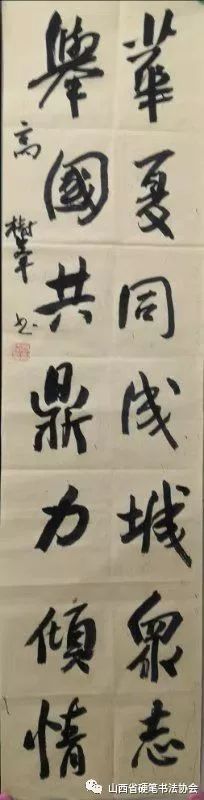 華夏同成城衆志
舉國共鼎力傾情
高樹书
山西省硬笔书法协会